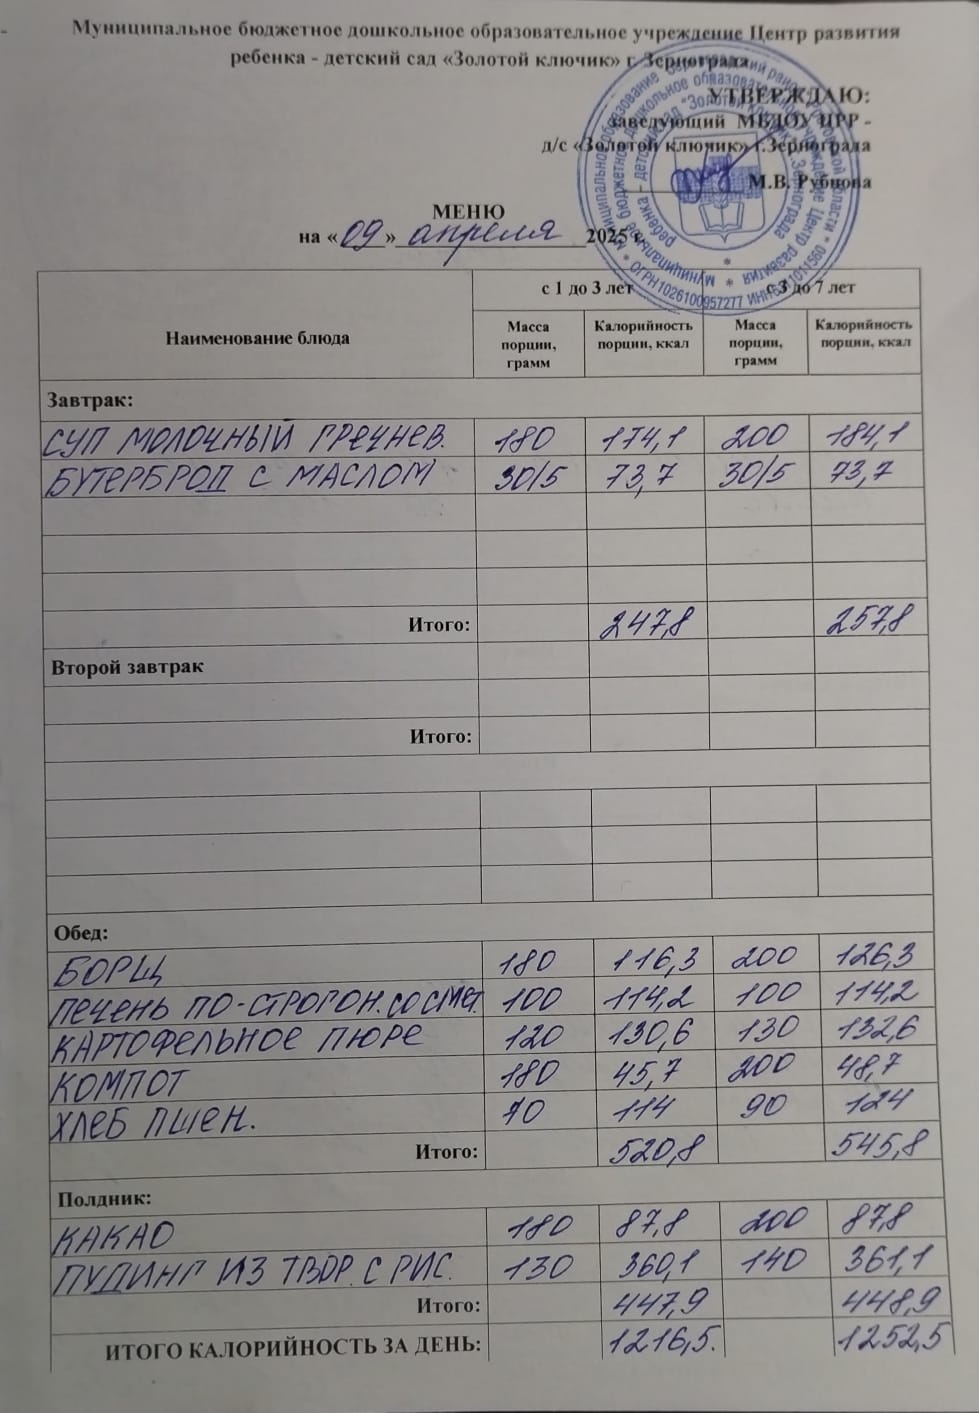 Муниципальное бюджетное дошкольное образовательное учреждение Центр развития
ребенка - детский сад «Золотой ключик» г. Зернограда
УТВЕРЖДАЮ:
заведующий МБДОУ ЦРР -
д/с «Золотой ключик» г.Зернограда
М.В. Рубцова
МЕНЮ
на «09» апреля 2025 г.
с 1 до 3 лет с 3 до 7 лет
Наименование блюда Масса порции, грамм Калорийность порции, ккал Масса порции, грамм Калорийность порции, ккал
Завтрак:
СУП МОЛОЧНЫЙ ГРЕЧНЕВ. 180 174,1 200 184,1
БУТЕРБРОД С МАСЛОМ 30/5 73,7 30/5 73,7
Итого: 247,8 257,8
Второй завтрак
Итого:
Обед:
БОРЩ 180 116,3 200 126,3
ПЕЧЕНЬ ПО-СТРОГОН. СО СМЕТ. 100 114,2 100 114,2
КАРТОФЕЛЬНОЕ ПЮРЕ 120 130,6 130 132,6
КОМПОТ 180 45,7 200 48,7
ХЛЕБ ПШЕН. 70 114 90 124
Итого: 520,8 545,8
Полдник:
КАКАО 180 87,8 200 87,8
ПУДИНГ ИЗ ТВОР. С РИС. 130 360,1 140 361,1
Итого: 447,9 448,9
ИТОГО КАЛОРИЙНОСТЬ ЗА ДЕНЬ: 1216,5. 1252,5